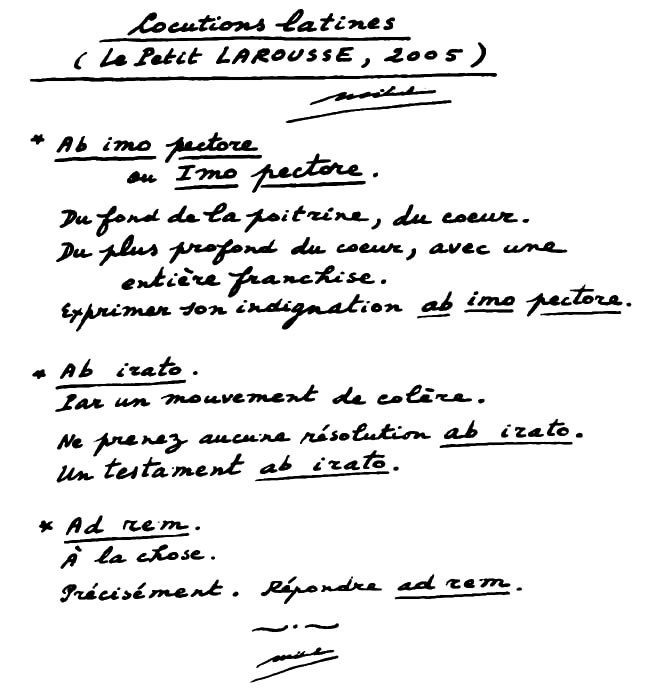 Locutions latines
( Le Petit LAROUSSE, 2005 )
* Ab imo pectore
ou Imo pectore.
Du fond de la poitrine, du coeur.
Du plus profond du coeur, avec une
entière franchise.
Exprimer son indignation ab imo pectore.
* Ab irato.
Par un mouvement de colère.
Ne prenez aucune résolution ab irato.
Un testament ab irato.
* Ad rem.
À la chose.
Précisément. Répondre ad rem.